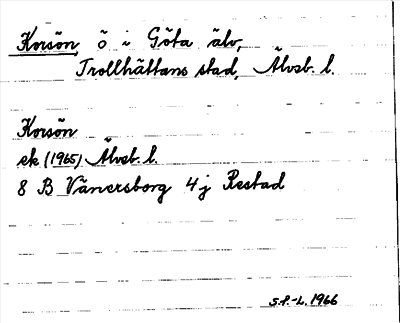 Korsön, ö i Göta älv,
Trollhättans stad, Älvsb. l.
Korsön
ek (1965) Älvsb. l.
8 B Vänersborg 4 j Restad
S.P.-L. 1966